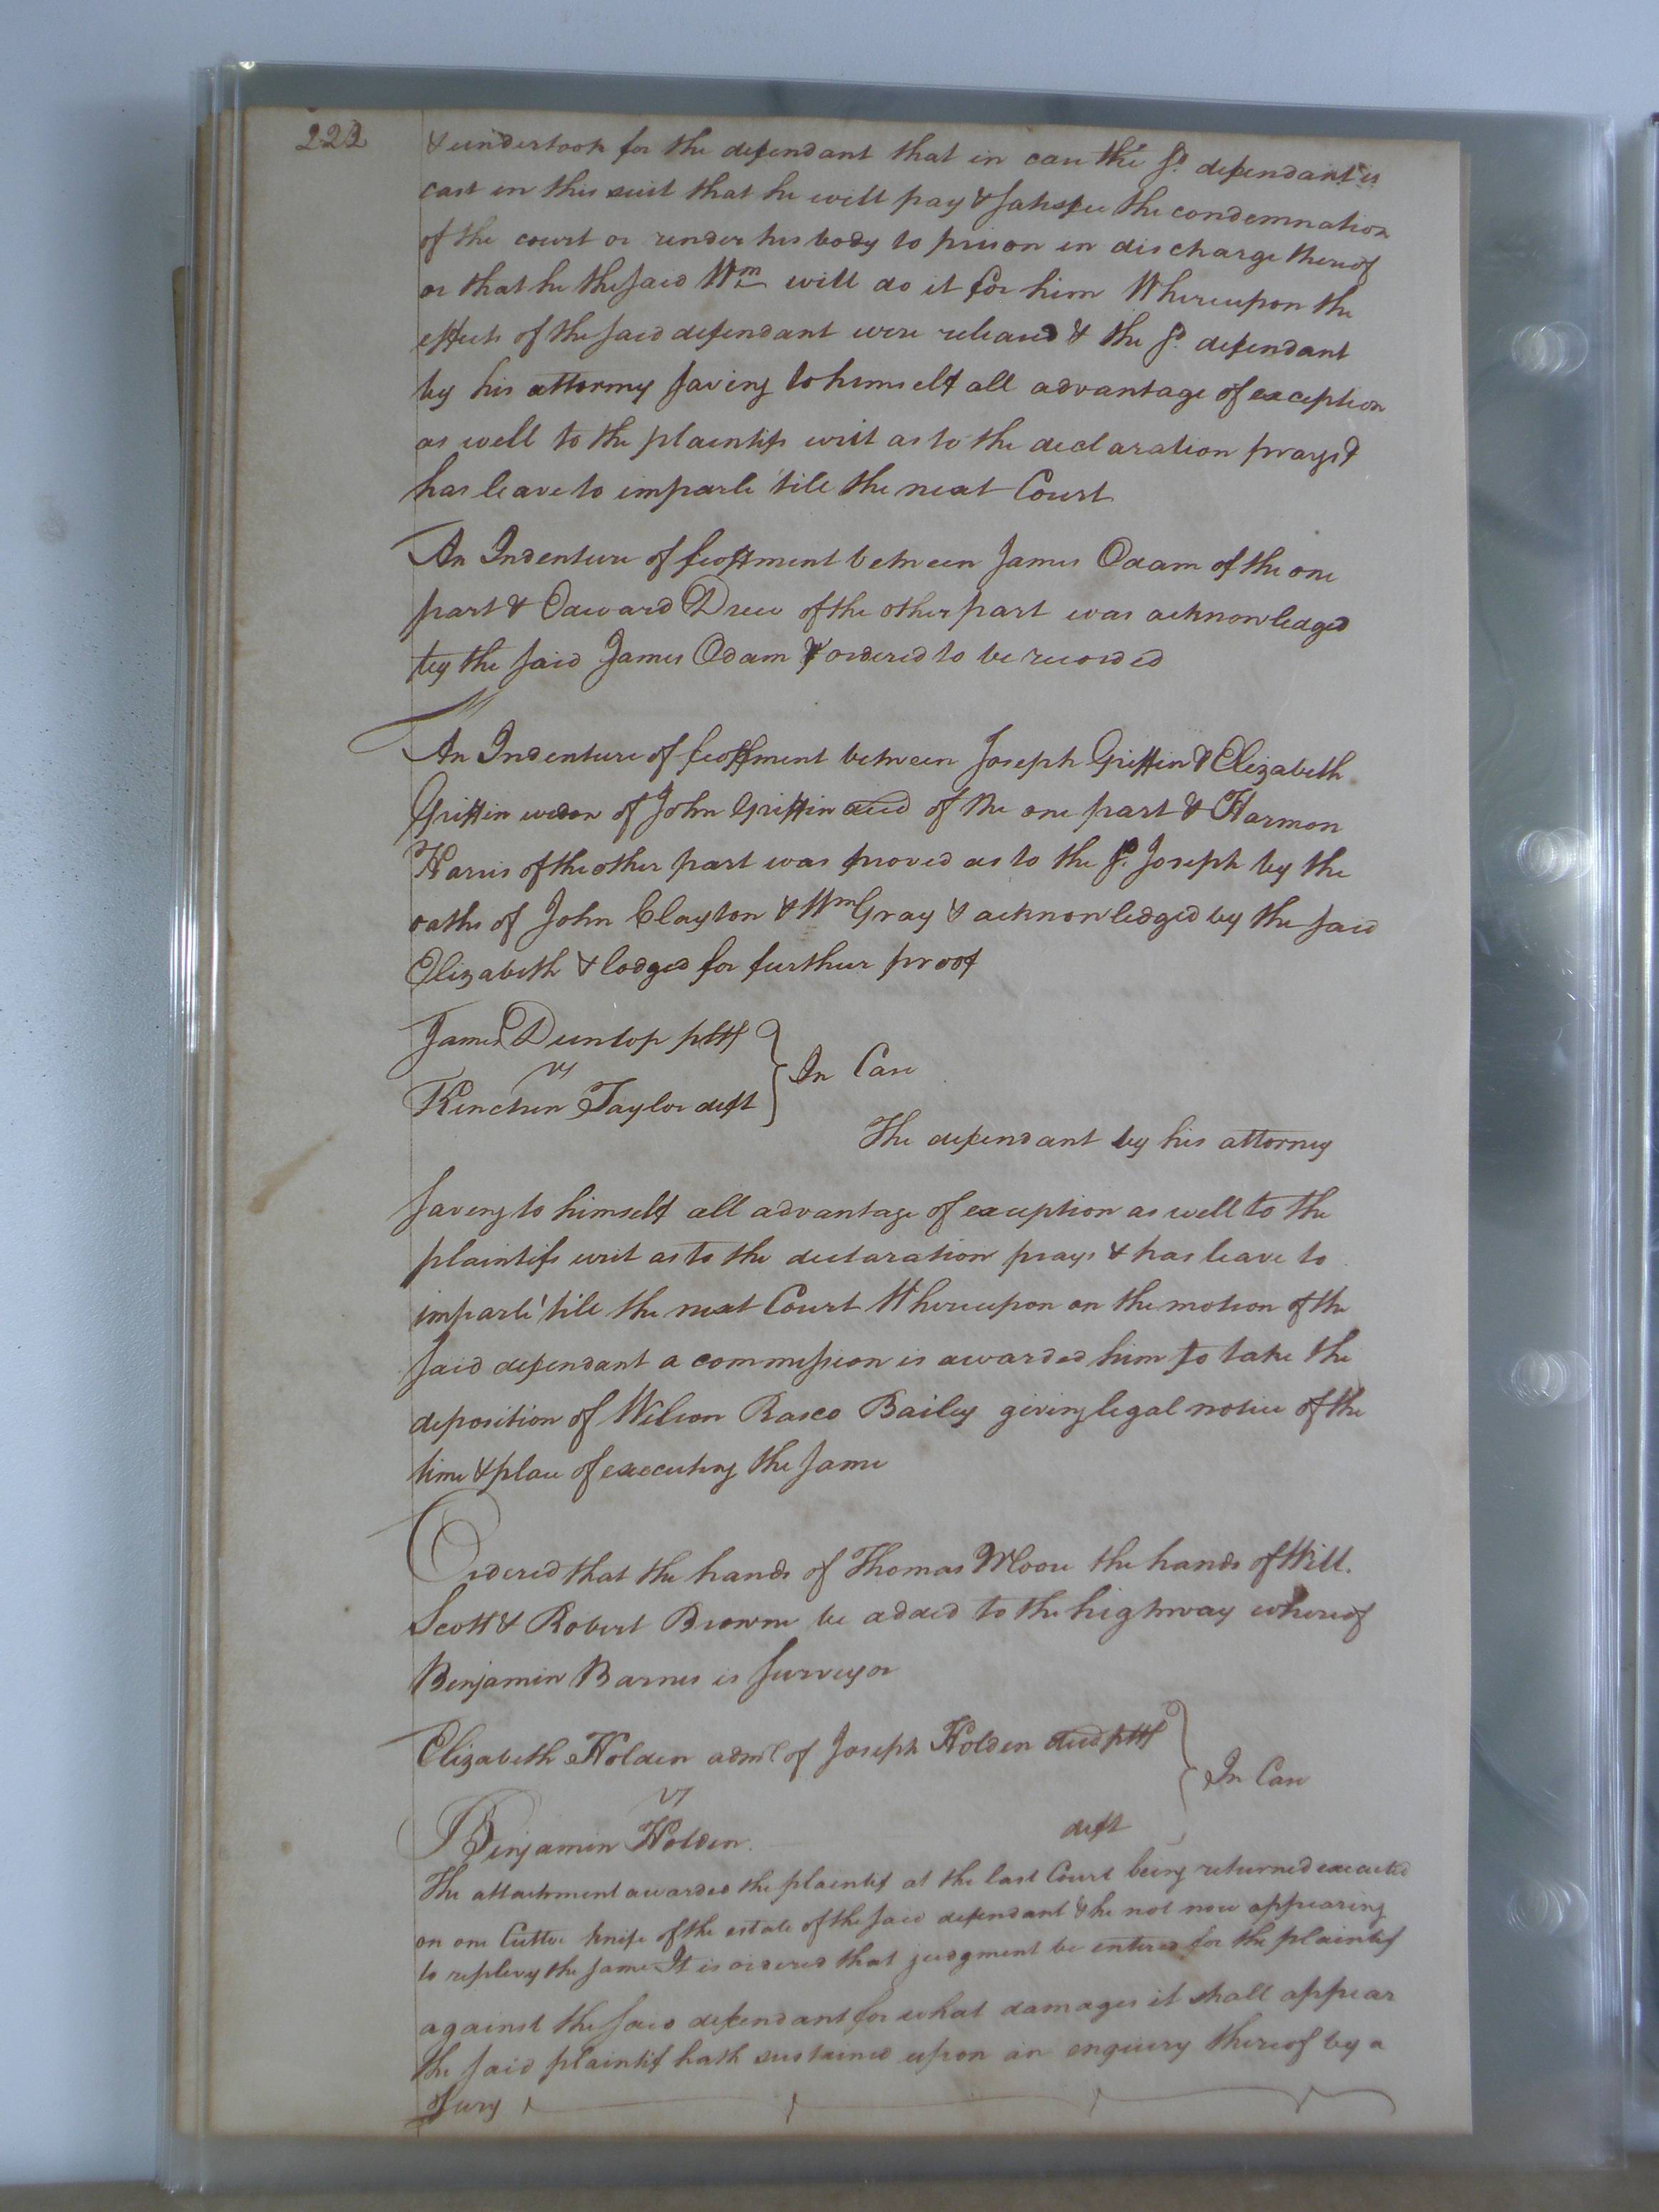 222
& undertook for the defendant that in case the sd. defendant is
cast in this suit that he will pay & satisfee the condemnation
of the court or render his body to prison in discharge thereof
or that he the said Wm will do it for him Whereupon the
effects of the said defendant were released & the sd. defendant
by his attorney saving to himself all advantage of exception
as well to the plaintifs writ as to the declaration prays &
has leave to imparle 'till the next Court
An Indenture of feoffment between James Odam of the one
part & Edward Drew of the other part was acknowledged
by the said James Odam & ordered to be recorded
An Indenture of feoffment between Joseph Griffin & Elizabeth
Griffin widow of John Griffin deced of the one part & Harmon
Harris of the other part was proved as to the sd. Joseph by the
oaths of John Clayton & Wm Gray & acknowledged by the said
Elizabeth & lodged for further proof
James Dunlop pltf
vs
In Case
Kinchen Taylor deft
The defendant by his attorney
saving to himself all advantage of exception as well to the
plaintifs writ as to the declaration prays & has leave to
imparle 'till the next Court Whereupon on the motion of the
said defendant a commission is awarded him to take the
deposition of Wilson Rasco Bailey giving legal notice of the
time & place of executing the same
Ordered that the hands of Thomas Moore the hands of Will.
Scott & Robert Browne be added to the highway whereof
Benjamin Barnes is surveyor
Elizabeth Holden adm of Joseph Holden deced pltf
In Case
vs
Benjamin Holden deft
The attachment awarded the plaintif at the last Court being returned executed
on one Cuttoe knife of the estate of the said defendant & he not now appearing
to replevy the same It is ordered that judgment be entered for the plaintif
against the said defendant for what damages it shall appear
the said plaintif hath sustained upon an enquiry thereof by a
Jury